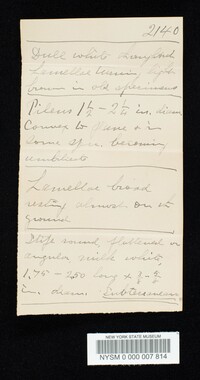 2140
Dull white throughout
Lamellae turning light
brown in old specimens
Pileus 1½ – 2½ in. diam
Convex to plane & in
some spn. becoming
umbilicate
Lamellae broad
resting almost on the
ground
Stipe round, flattened or
angular milk white,
1.75 – 2.50 long x
in. diam. Subterranean
NEW YORK STATE MUSEUM
NYSM 0 000 007 814